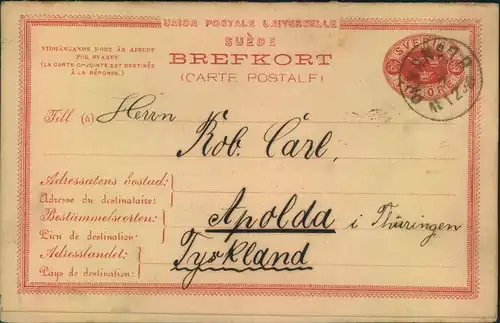 UNION POSTALE UNIVERSELLE
SUÈDE
VIDHÄNGANDE KORT ÄR AFSEDT
FÖR SVARET
(LA CARTE CI-JOINTE EST DESTINÉE
À LA RÉPONSE.)
BREFKORT
(CARTE POSTALE)
SVERIGE
Till (à) Herrn
Rob. Carl,
Adressatens bostad:
Adresse du destinataire:
Bestämmelseorten:
Apolda i Thüringen
Lieu de destination:
Adresslandet:
Tyskland
Pays de destination: